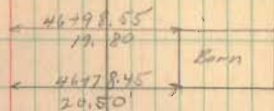 46+98.55
19.80
Barn
46+78.45
20.50'